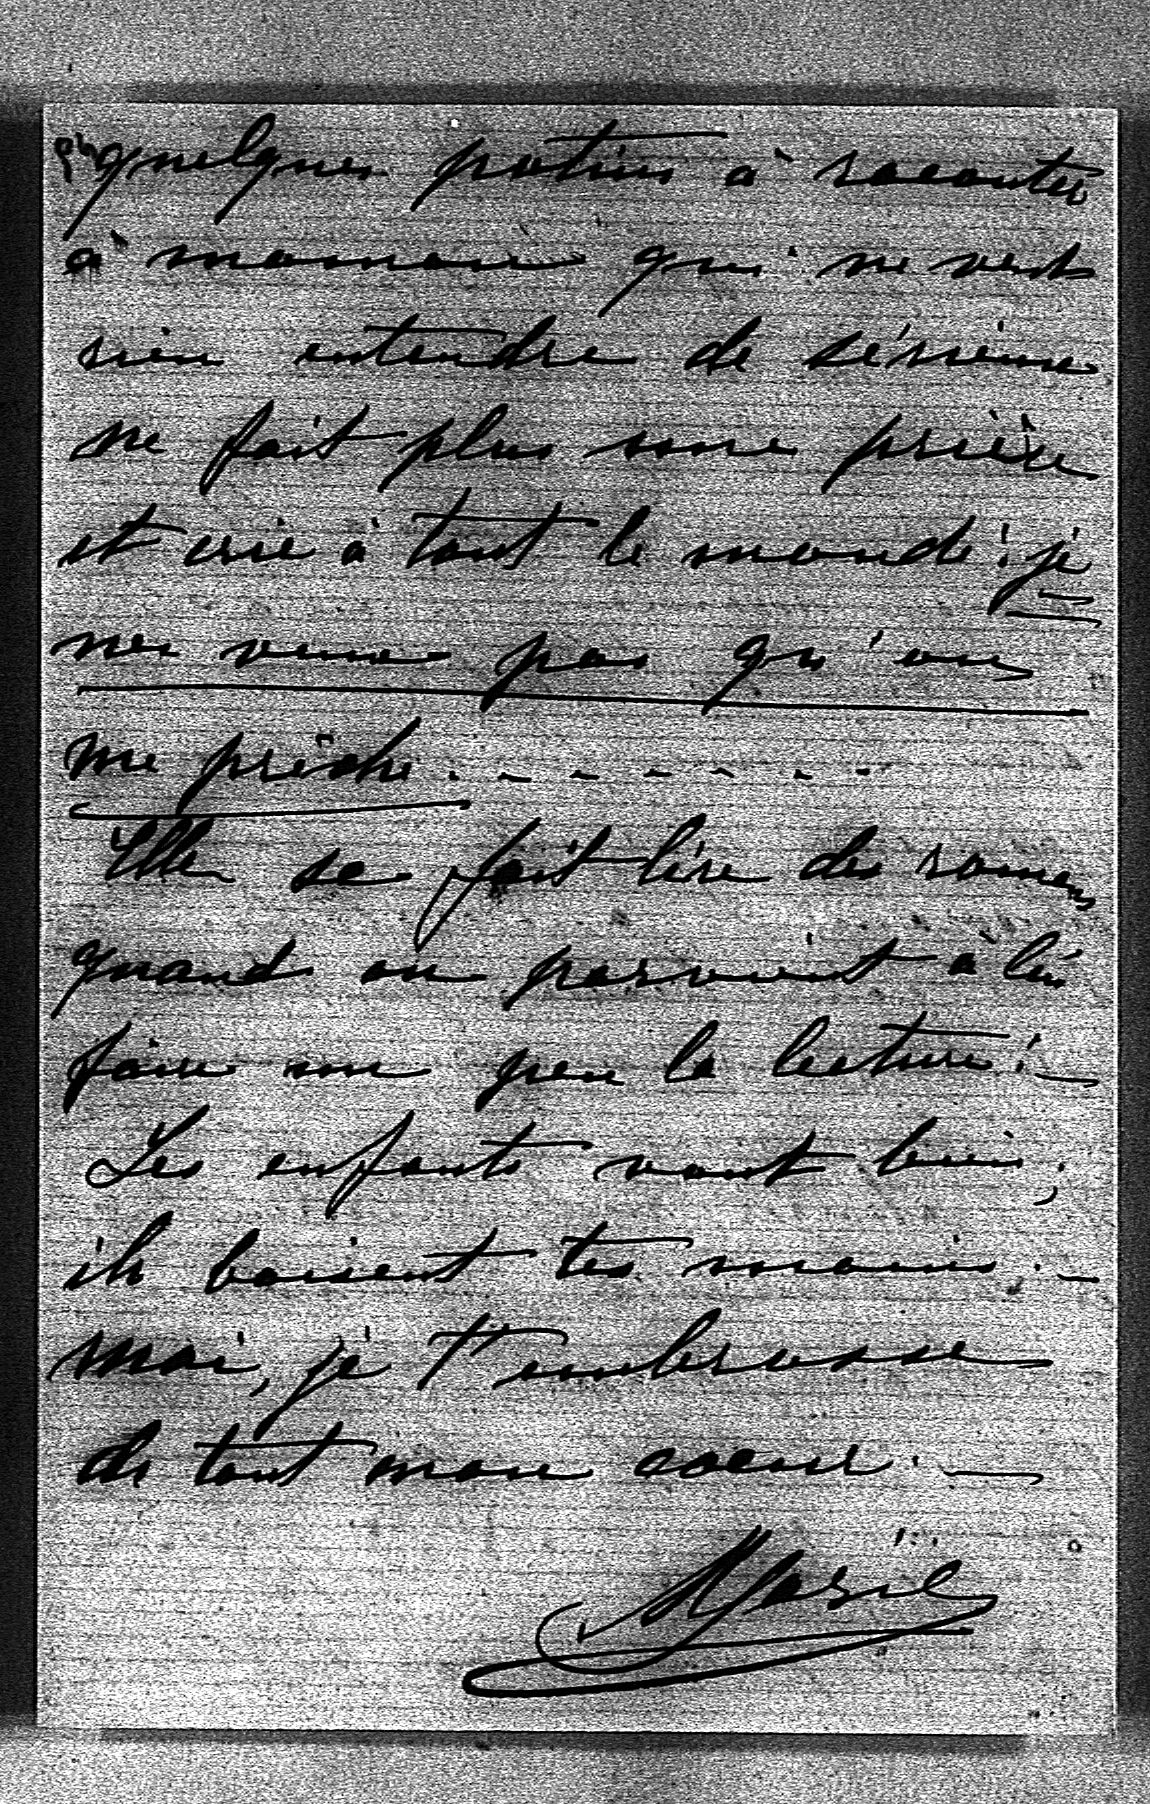 quelques potins à raconter
à maman qui ne veut
rien entendre de sérieux
ne fait plus une prière
et crie à tout le monde : je
ne veux pas qu'on
me prêche . - - - - - -
Elle se fait lire des romans
quand on parvient à lui
faire un peu la lecture ! —
Les enfants vont bien ;
ils baisent tes mains . —
Moi, je t'embrasse
de tout mon coeur . —
Marie